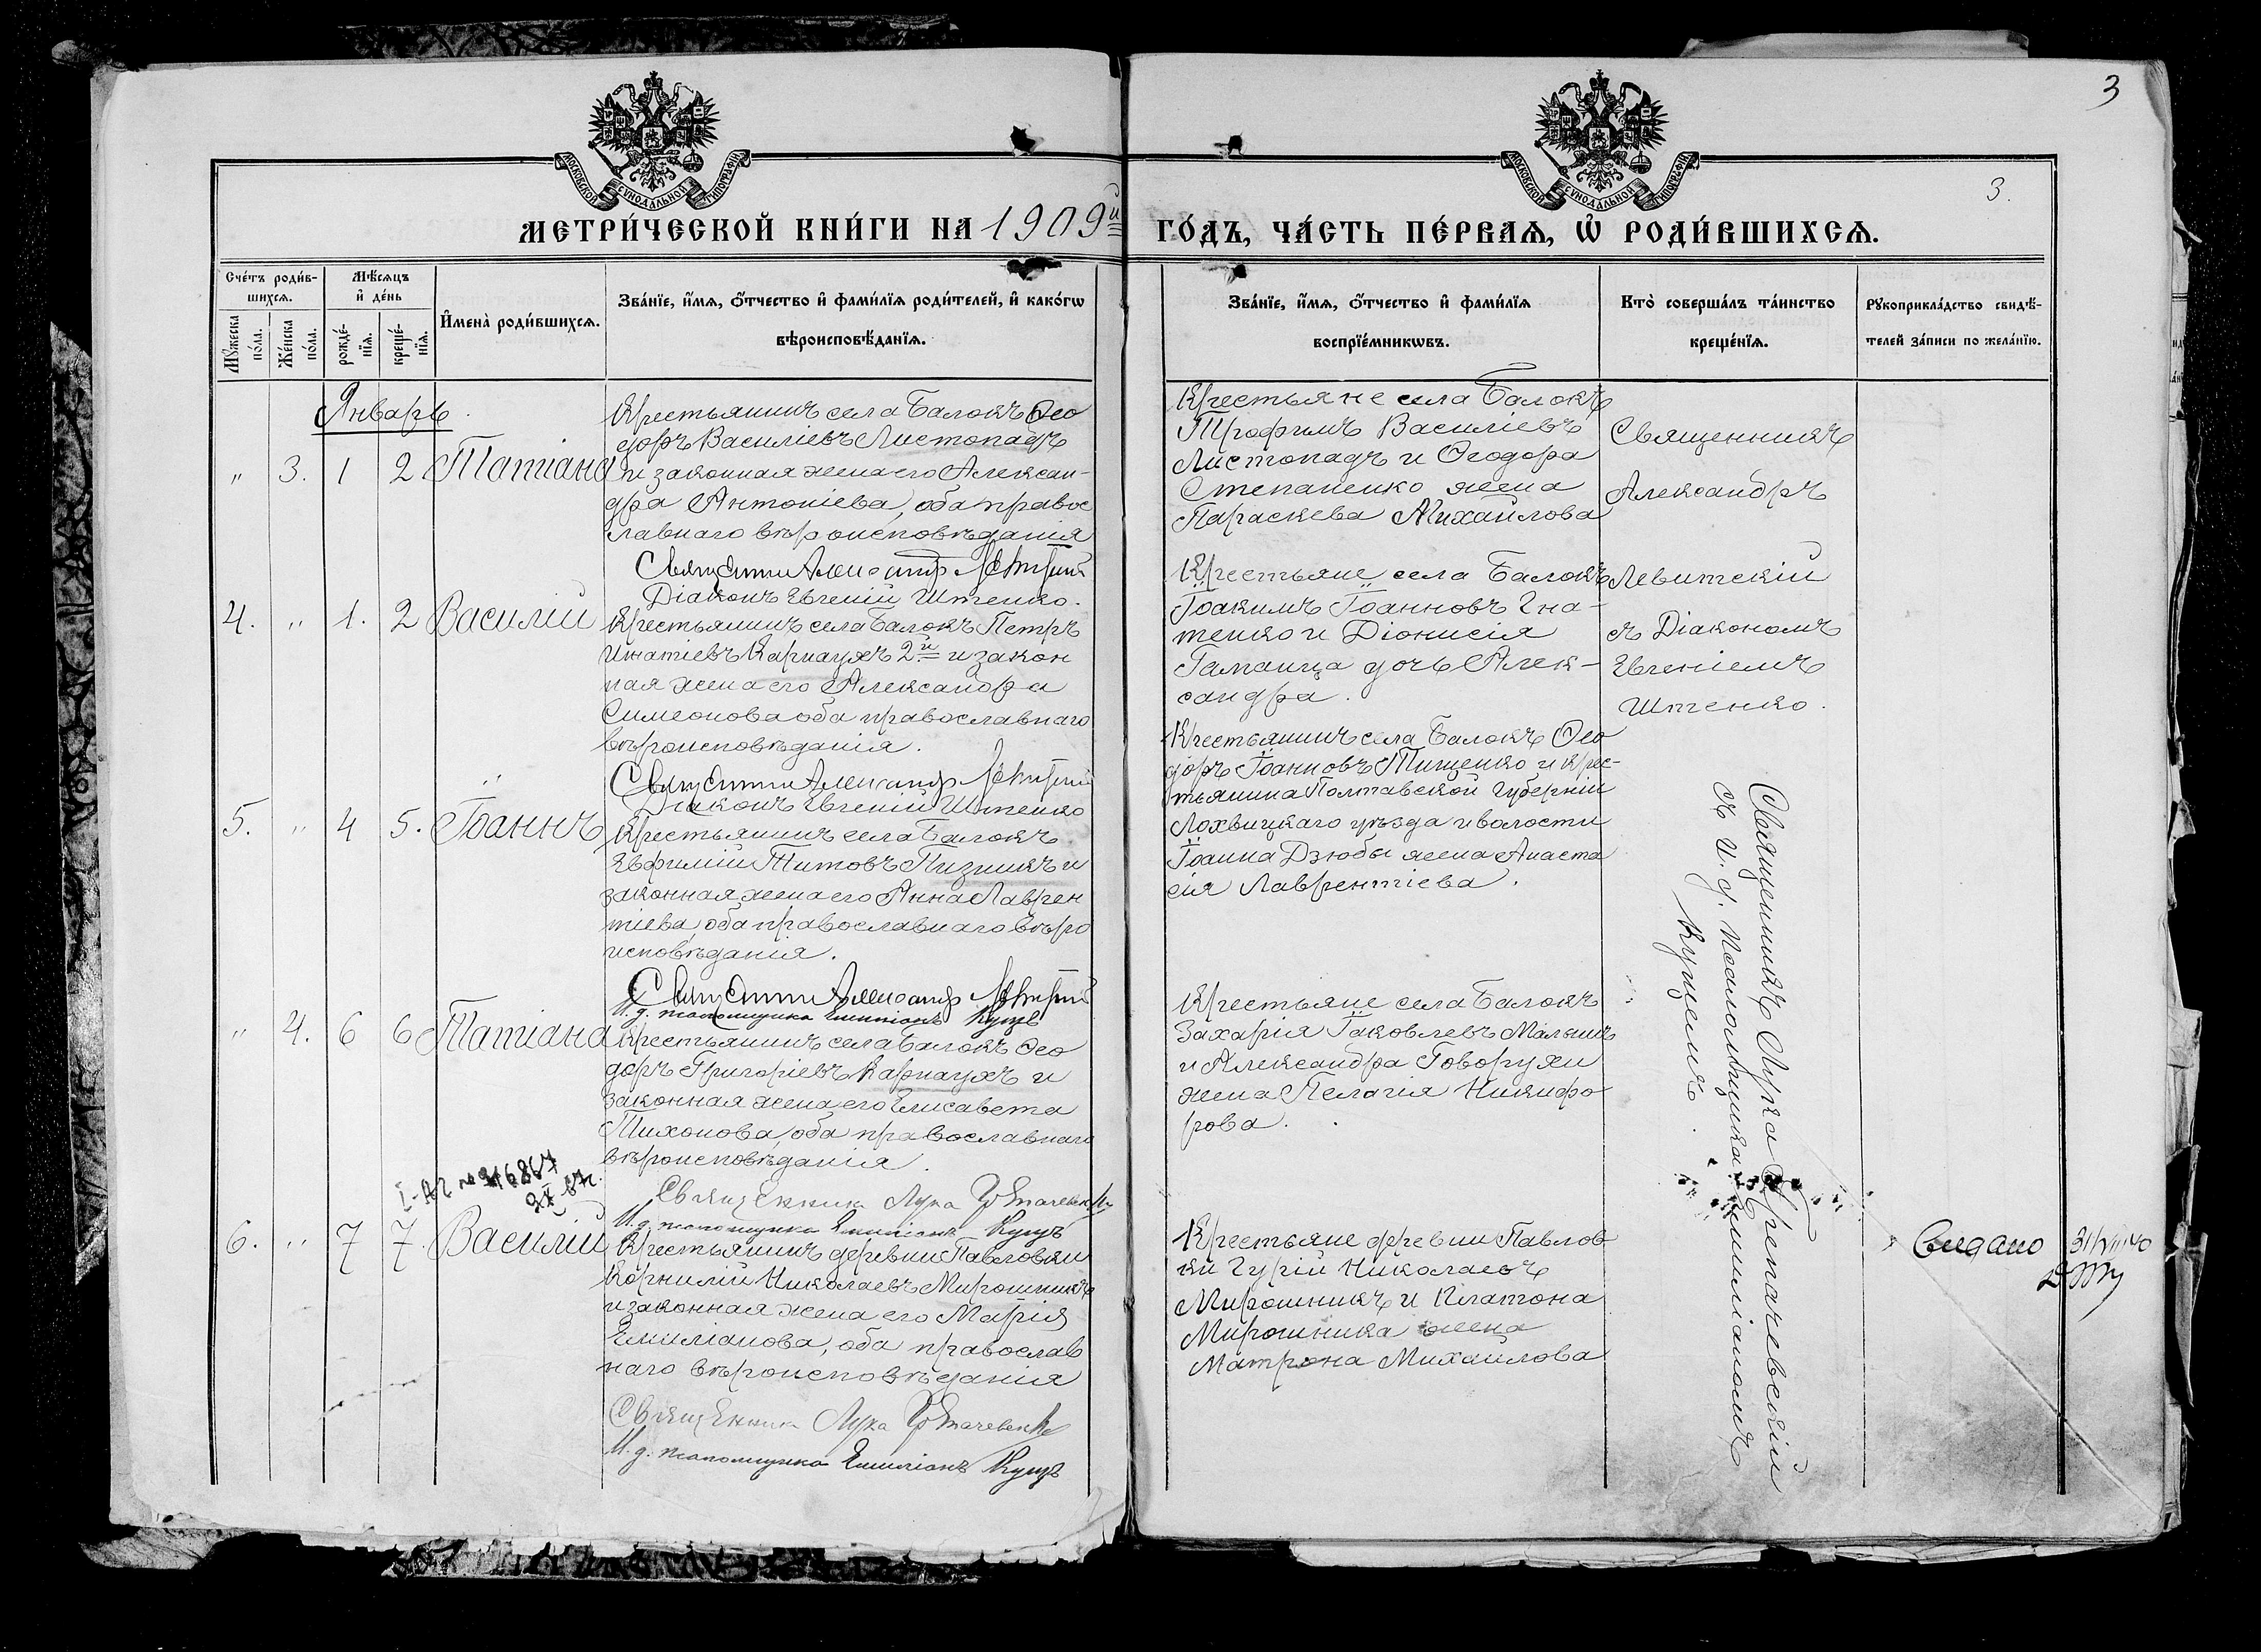 3
3.
МОСКОВСКОЙ СѴНОДАЛЬНОЙ ТИПОГРАФІИ
МОСКОВСКОЙ СѴНОДАЛЬНОЙ ТИПОГРАФІИ
МЕТРИ́ЧЕСКОЙ КНИ́ГИ НА 1909й ГО́ДЪ, ЧА́СТЬ ПЕ́РВАѦ, Ѡ҆ РОДИ́ВШИХСѦ.
Сче́тъ роди́в-
шихсѧ.
Мꙋ́жеска
по́ла.
Же́нска
по́ла.
Мѣ́сѧцъ
и҆ де́нь
рожде́-
нїѧ.
креще́-
нїѧ.
И҆мена̀ роди́вшихсѧ.
Зва́нїе, и҆́мѧ, ѻ҆́тчество и҆ фами́лїѧ роди́телей, и҆ како́гѡ
вѣроисповѣ́данїѧ.
Зва́нїе, и҆́мѧ, ѻ҆́тчество и҆ фами́лїѧ
воспрїе́мникѡвъ.
Кто̀ соверша́лъ та́инство
креще́нїѧ.
Рꙋкоприкла́дство свидѣ́-
телей за́писи по жела́нїю.
Январь
" 3. 1 2 Татіана
Крестьянинъ села Балокъ Ѳео
доръ Василіевъ Листопадъ
и законная жена его Алексан-
дра Антоніева, оба правос
лавнаго вѣроисповѣданія
Священникъ Александр Левитский
Діаконъ Евгеній Штепко.
Крестьяне села Балокъ
Трофимъ Василіевъ
Листопадъ и Ѳеодора
Степаненко жена
Параскева Михайлова
Священникъ
Александръ
Левитскій
съ Діакономъ
Евгеніемъ
Штепко.
4. " 1. 2 Василій
Крестьянинъ села Балокъ Петръ
Игнатіевъ Карнаухъ 2й и закон
ная жена его Александра
Симеонова оба православнаго
вѣроисповѣданія.
Священникъ Александр Левитский
Діаконъ Евгеній Штепко
Крестьяне села Балокъ
Іоакимъ Іоанновъ Гна-
тенко и Діонисія
Гаманца дочь Алек-
сандра.
5. " 4 5. Іоаннъ
Крестьянинъ села Балокъ
Евфимій Титовъ Пизникъ и
законная жена его Анна Лаврен
тіева, оба православнаго вѣро
исповѣданія.
Священникъ Александр Левитский
И. д. псаломщика Емиліанъ Куцъ
Крестьянинъ села Балокъ Ѳео
доръ Іоанновъ Тищенко и крес-
тьянина Полтавской Губерніи
Лохвицкаго уѣзда и волости
Іоанна Дзюбы жена Анаста
сія Лаврентіева.
" 4. 6 6 Татіана
Крестьянинъ села Балокъ Ѳео
доръ Григоріевъ Карнаухъ и
законная жена его Елисавета
Тихонова, оба православнаго
вѣроисповѣданія.
Священникъ Лука
И. д. псаломщика Емиліанъ Куцъ
Крестьяне села Балокъ
Захарія Іаковлевъ Мальчикъ
и Александра Говорухи
жена Пелагія Никифо
рова.
Священникъ Лука
съ и. д. псаломщика Емиліаномъ
Куцемъ.
6. " 7 7. Василій
Крестьянинъ деревни Павловки
Корнилій Николаевъ Мирошникъ
и законная жена его Марія
Емиліанова, оба православ
наго вѣроисповѣданія
Священникъ Лука
И. д. псаломщика Емиліанъ Куцъ
Крестьяне деревни Павлов
ки Гурій Николаевъ
Мирошникъ и Платона
Мирошника жена
Матрона Михайлова